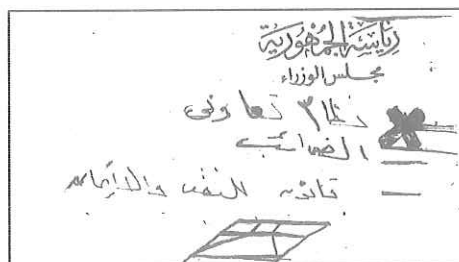 رياسة الجمهورية
مجلس الوزراء
نظام تعاونى
الضرائب
قانون للنقد والائتمان